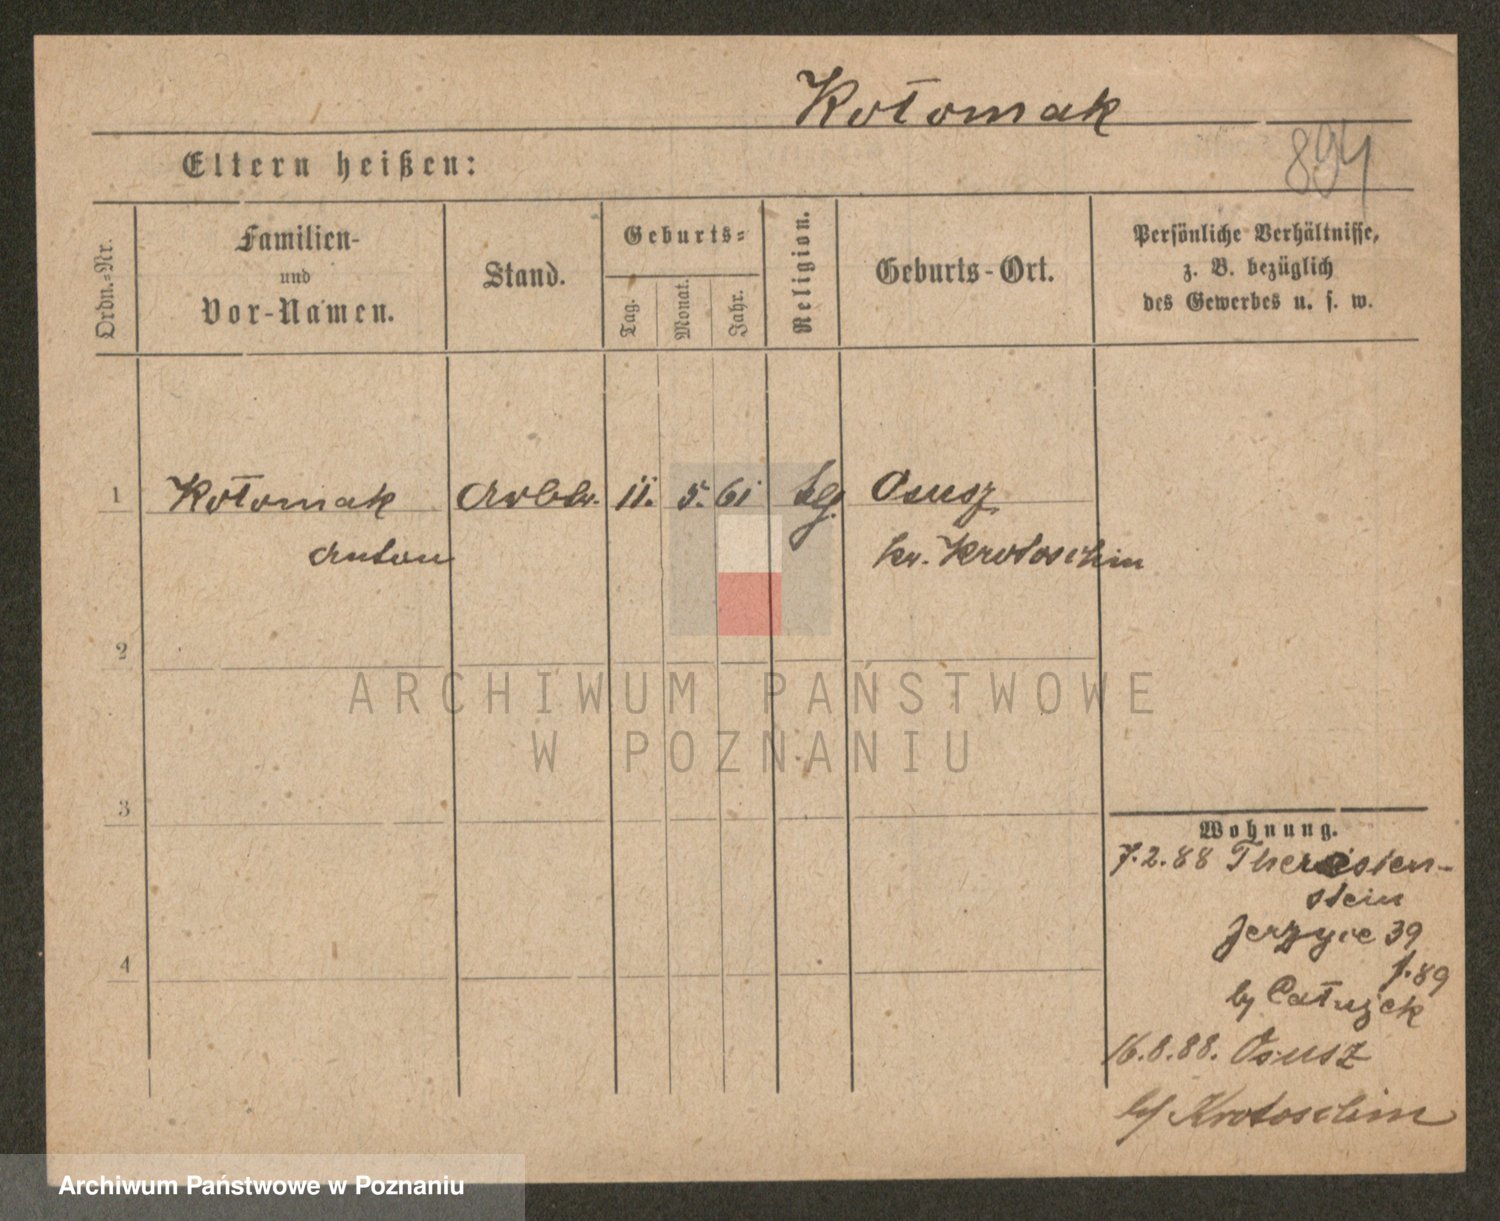 Kołomak
894
Eltern heißen:
Ordn.-Nr.
Familien-
und
Vor-Namen.
Stand.
Geburts-
Tag.
Monat.
Jahr.
Religion.
Geburts-Ort.
Persönliche Verhältnisse,
z. B. bezüglich
des Gewerbes u. s. w.
1 Kołomak Arbtr. 11. 5. 61 Osusz
Anton kr. Krotoschin
2
3
4
Wohnung.
7.2.88 Theresien-
stein
Jerzyce 39
f. 89
by Całujek
16.8.88. Osusz
bei Krotoschin
ARCHIWUM PAŃSTWOWE
W POZNANIU
Archiwum Państwowe w Poznaniu